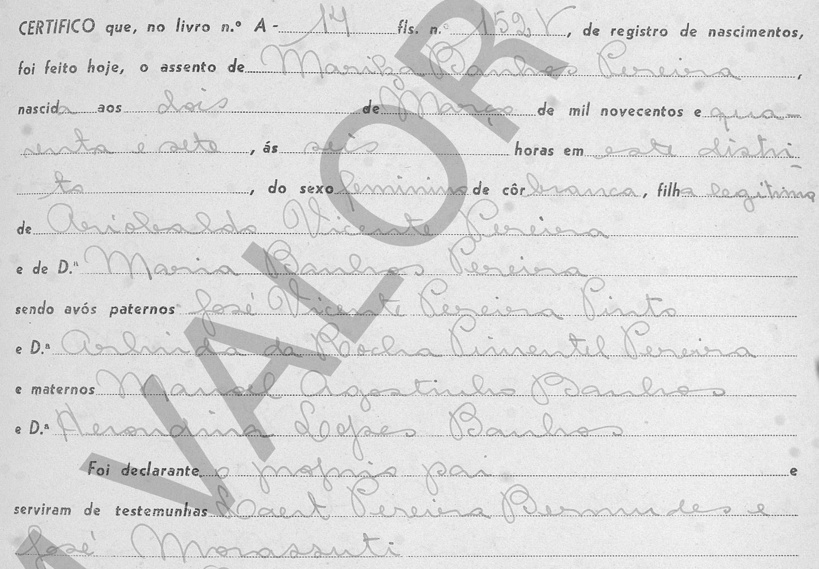 CERTIFICO que, no livro n.º A - 14 fls. n.º 152 V, de registro de nascimentos,
foi feito hoje, o assento de Marilza Banhos Pereira,
nascida aos dois de Março de mil novecentos e qua-
renta e sete, ás seis horas em este distri-
to, do sexo feminino de côr branca, filha legitima
de Ariobaldo Vicente Pereira
e de D.ª Maria Banhos Pereira
sendo avós paternos José Vicente Pereira Pinto
e D.ª Arlinda da Rocha Pimentel Pereira
e maternos Manoel Agostinho Banhos
e D.ª Herondina Lopes Banhos
Foi declarante o proprio pai e
serviram de testemunhas Pereira Bermudes e
José Morassuti
VALOR